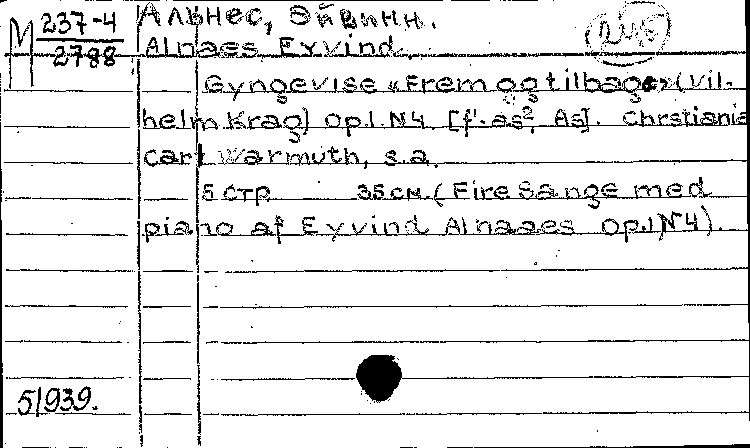 М 237-4
2788
Альнес, Эйвинн.
Alnaes Eyvind.
Gyngevise «Frem og tilbage» (Vil-
helm Krag) Op.1.N4. [f'-as², As]. Chrstiania
Carl Warmuth, s.a.
5 стр. 35 см. (Fire Sange med
piano af Eyvind Alnaaes Op.1, N4).
51939.